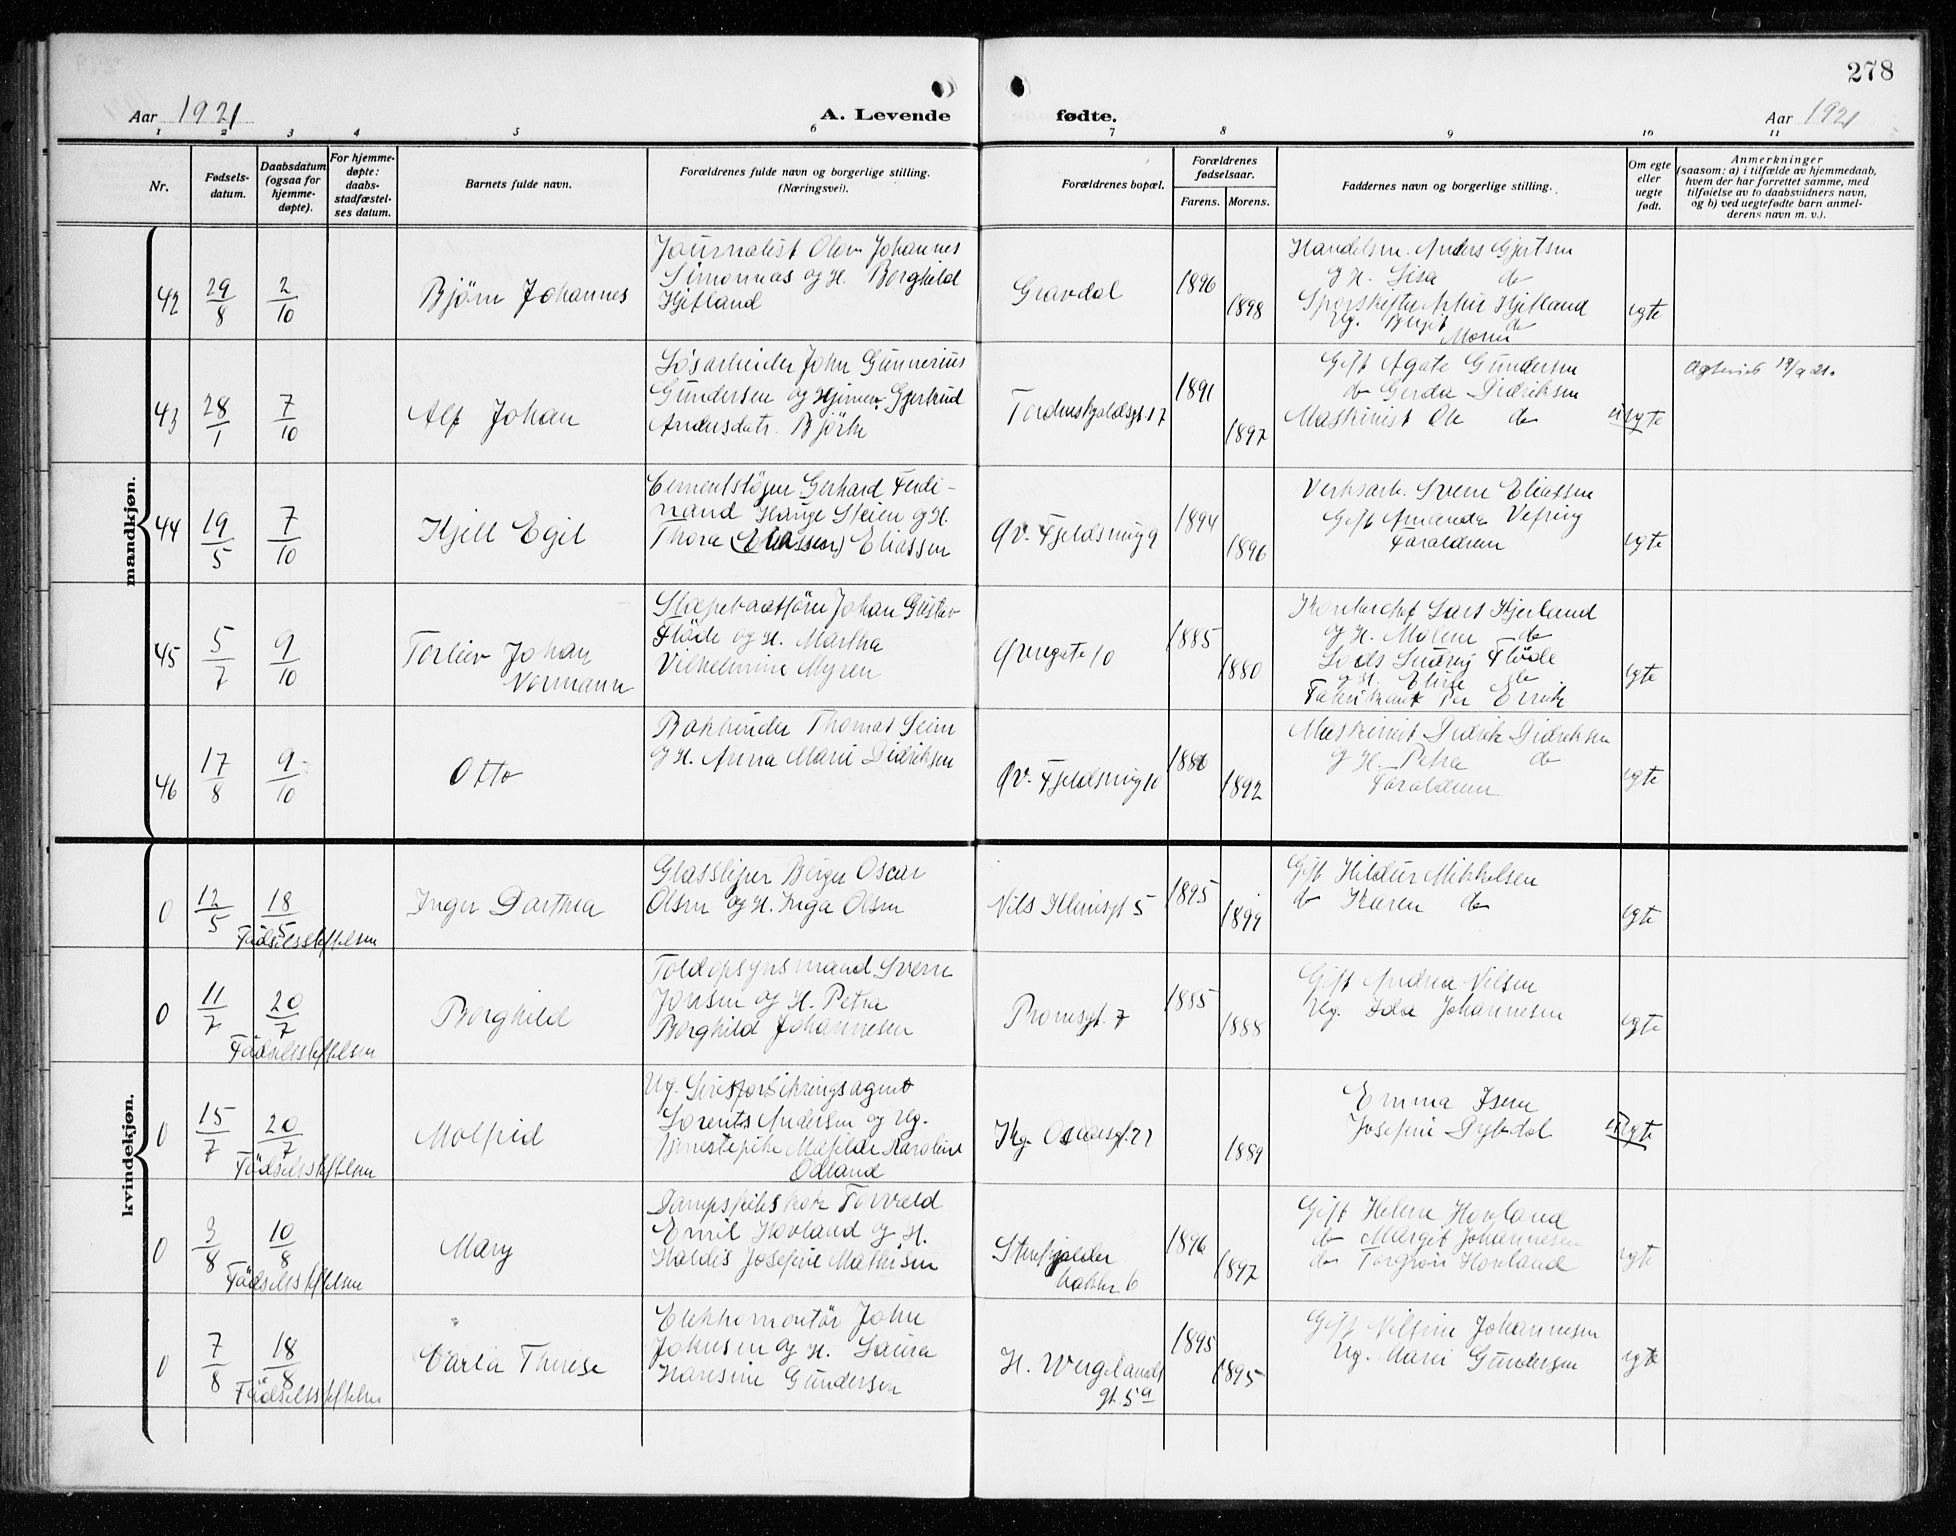 278
Aar 1921
A. Levende
fødte.
Aar 1921
1 2 3 4 5 6 7 8 9 10 11
Nr.
Fødsels-
datum.
Daabsdatum
(ogsaa for
hjemme-
døpte).
For hjemme-
døpte:
daabs-
stadfæstel-
ses datum.
Barnets fulde navn.
Forældrenes fulde navn og borgerlige stilling.
(Næringsvei).
Forældrenes bopæl.
Forældrenes
fødselsaar.
Farens. Morens.
Faddernes navn og borgerlige stilling.
Om egte
eller
uegte
født.
Anmerkninger
(saasom: a) i tilfælde av hjemmedaab,
hvem der har forrettet samme, med
tilføielse av to daabsvidners navn,
og b) ved uegtefødte barn anmel-
derens navn m. v.).
mandkjøn.
42
29/8
2/10
Bjørn Johannes
Journalist Olav Johannes
Simonnæs og H. Borghild
Kjitland
Gravdal
1896
1898
Handelsm. Anders Gjertsen
og H. Lisa do
Arthur Kjitland
Ug. Birgit do
Moren
egte
43
28/1
7/10
Alf Johan
Løsarbeider John Gunnerius
Gundersen og Hjemmev. Gjertrud
Andersdatr. Björke
Tordenskjoldsgt. 17
1891
1897
Gift Agate Gundersen
do Gerda Didriksen
Maskinist Ole do
uegte
19/9 21.
44
19/5
7/10
Kjell Egil
Cementstøper Gerhard Ferdi-
nand Hauge Steien og H.
Thora (Eliassen) Eliassen
Øv. Fjeldsmug 9
1894
1896
Verksarb. Sverre Eliassen
Gift Amanda Vefring
Forældrene
egte
45
5/7
9/10
Torleiv Johan
Normann
Slæpebaatfører Johan Gustav
Fløde og H. Martha
Vilhelmine Myren
Øvregate 10
1885
1880
Kontorchef Lars Kjerland
og H. Malene do
Lods Ludvig Fløde
og H. Elise do
Fabrikant Per Errik
egte
46
17/8
9/10
Otto
Bokbinder Thomas Seim
og H. Anna Marie Didriksen
Øv. Fjeldsmug 10
1892
Maskinist Didrik Didriksen
og H. Petra do
Forældrene
egte
kvindekjøn.
0
12/5
18/5
Fødselsstiftelsen
Inger Dorthea
Glassliper Birger Oscar
Olsen og H. Inga Olsen
Nils Klimsgt 5
1895
1899
Gift Hildur Mikkelsen
do Karen do
egte
0
11/7
20/7
Fødselsstiftelsen
Borghild
Toldopsynsmand Sverre
Jonsen og H. Petra
Borghild Johannesen
Promsgt. 7
1885
1888
Gift Andrea Nilsen
Ug. Ida Johannesen
egte
0
15/7
20/7
Fødselsstiftelsen
Molfrid
Ug. Livsforsikringsagent
Lorents Andersen og Ug.
Tjenestepike Matilde Karoline
Odland
Kg. Oscarsgt. 21
1889
Emma Isene
Josefine Dybdal
uegte
0
3/8
10/8
Fødselsstiftelsen
Mary
Dampskibskok Torvald
Emil Hovland og H.
Haldis Josefine Mathisen
Stenkjelder
bakken 6
1896
1897
Gift Helene Hovland
do Margit Johannesen
do Torgron Hovland
egte
0
7/8
18/8
Fødselsstiftelsen
Carla Therese
Elektromontör John
Johnsen og H. Laura
Hansine Gundersen
H. Wergelands
gt. 5a
1895
1895
Gift Nilsine Johannesen
Ug. Marie Gundersen
egte